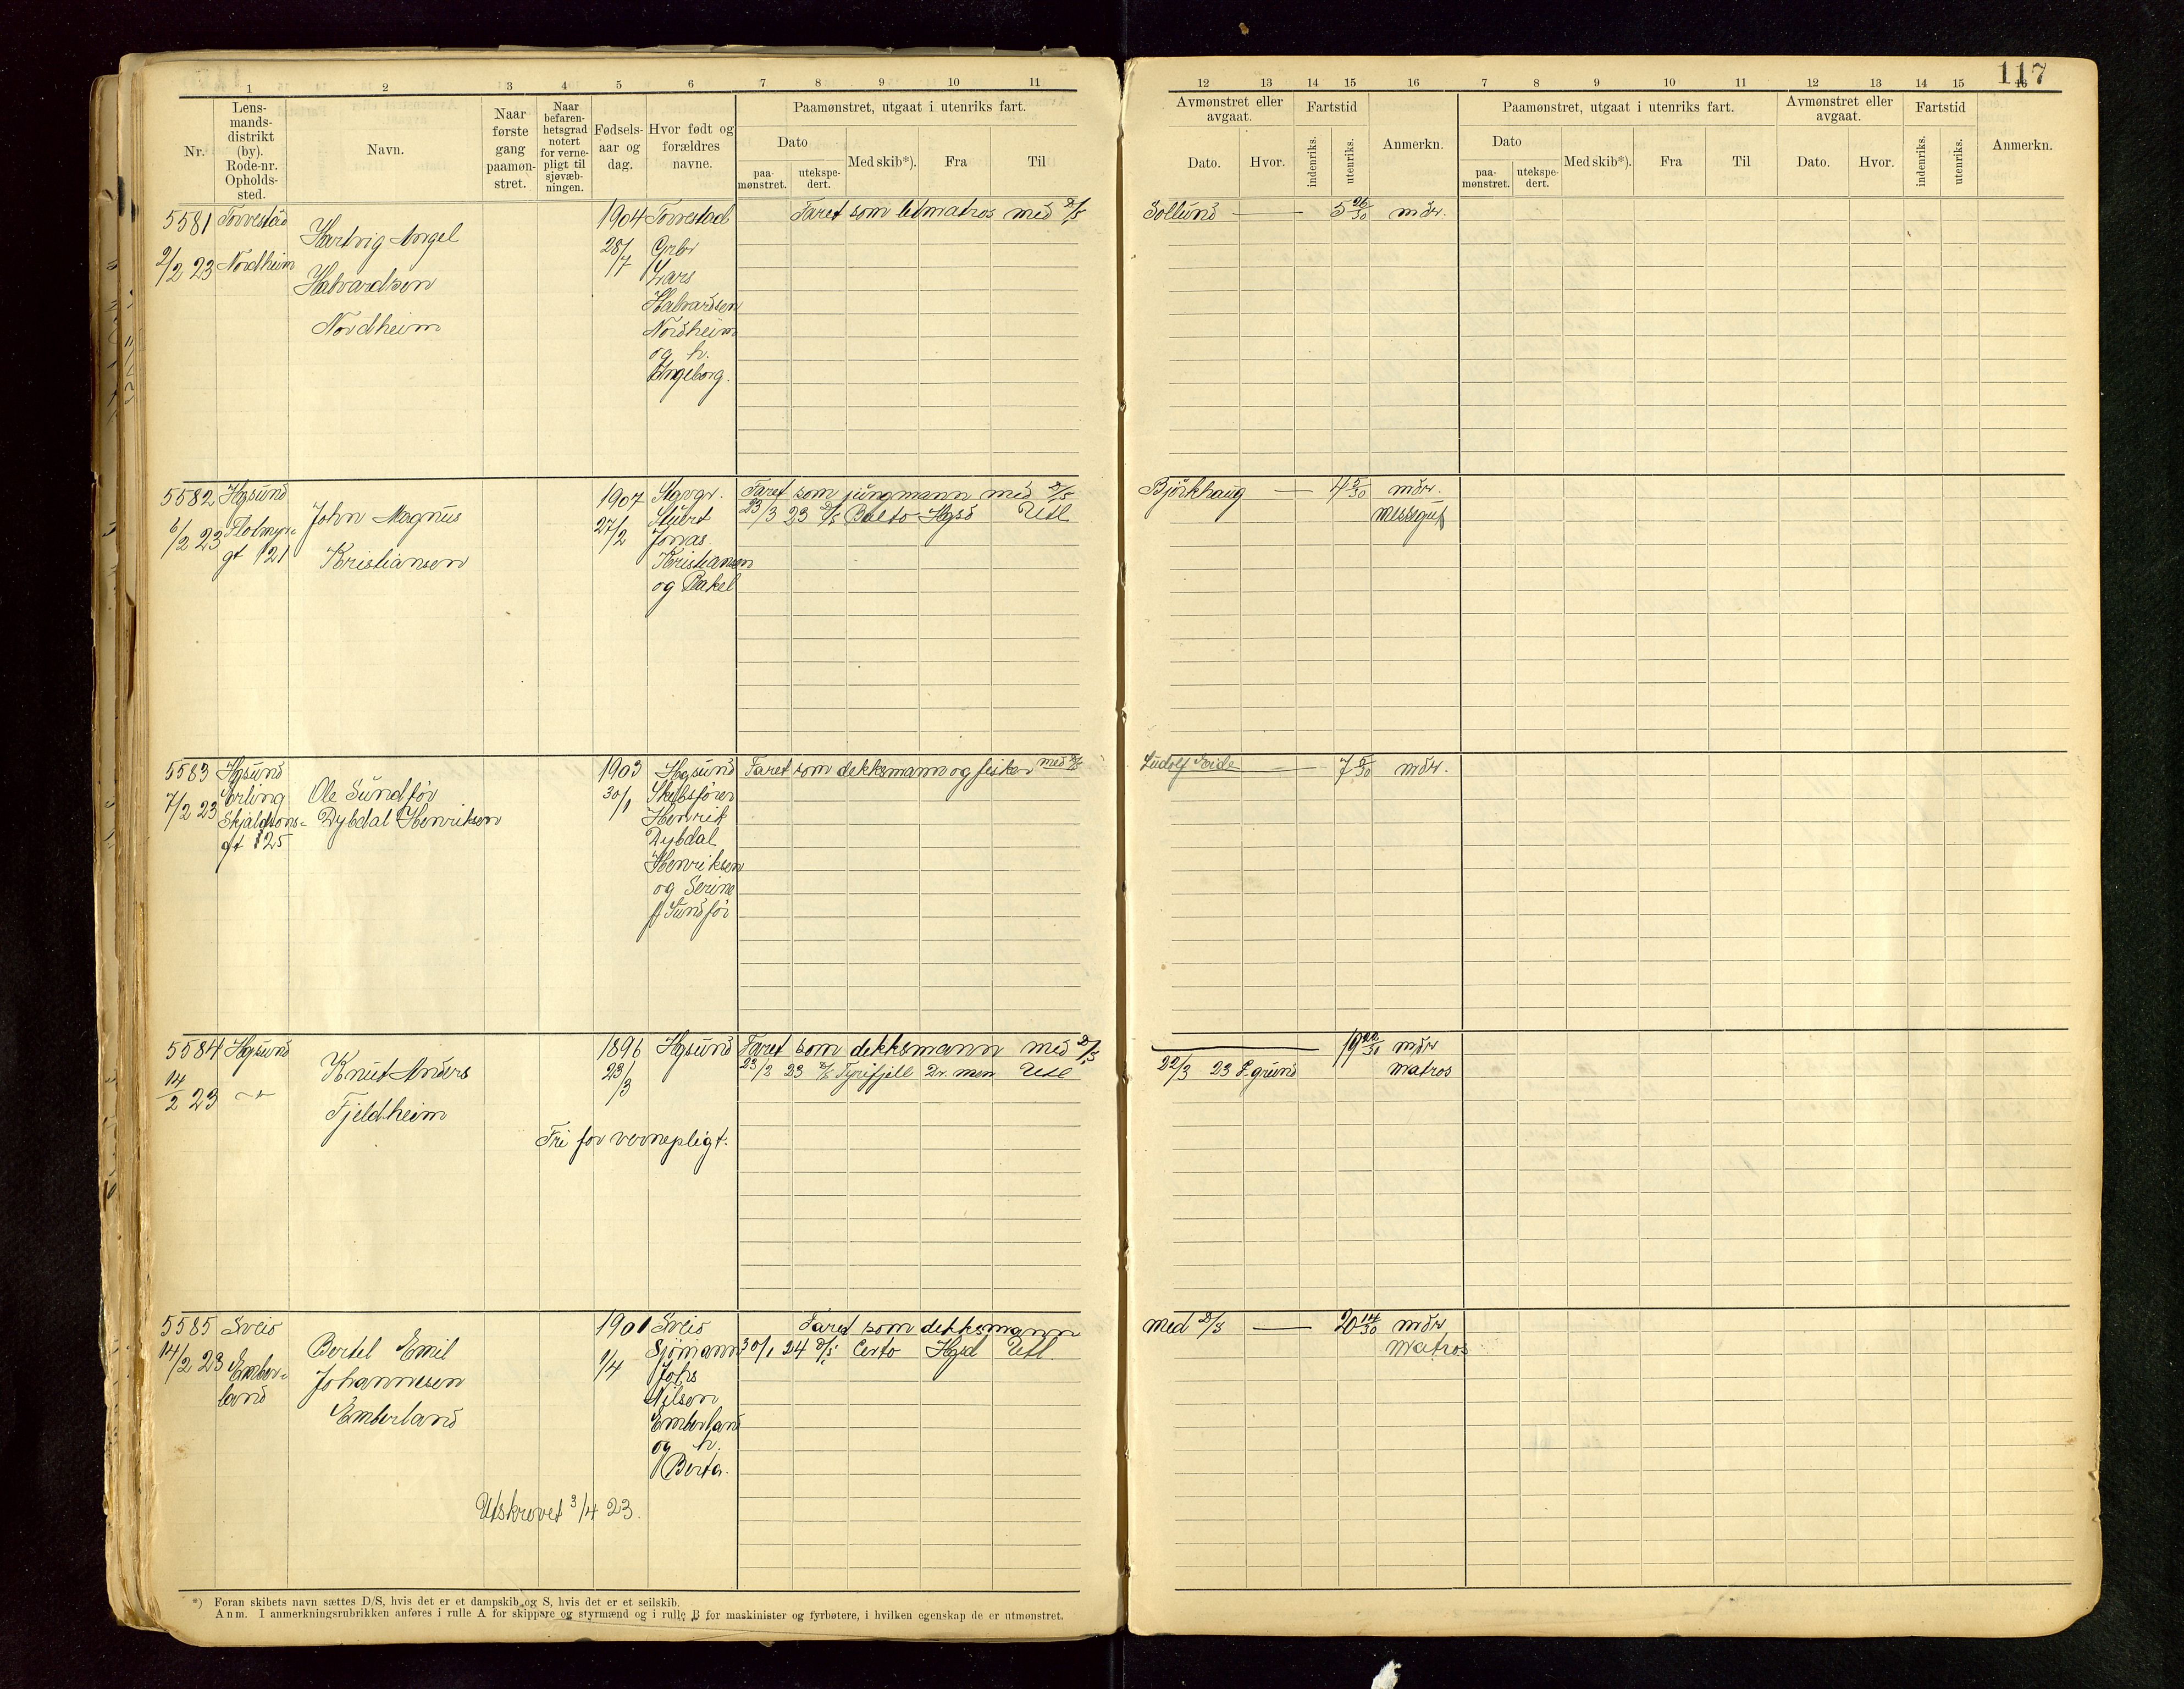 117
1 2 3 4 5 6 7 8 9 10 11
12 13 14 15 16 7 8 9 10 11 12 13 14 15 16
Nr.
Lens-
mands-
distrikt
(by).
Rode-nr.
Opholds-
sted.
Navn.
Naar
første
gang
paamøn-
stret.
Naar
befaren-
hetsgrad
notert
for verne-
pligt til
sjøvæb-
ningen.
Fødsels-
aar og
dag.
Hvor født og
forældres
navne.
Paamønstret, utgaat i utenriks fart.
Dato
paa-
mønstret.
utekspe-
dert.
Med skib*).
Fra
Til
Avmønstret eller
avgaat.
Dato.
Hvor.
Fartstid
indenriks.
utenriks.
Anmerkn.
Paamønstret, utgaat i utenriks fart.
Dato
paa-
mønstret.
utekspe-
dert.
Med skib*).
Fra
Til
Avmønstret eller
avgaat.
Dato.
Hvor.
Fartstid
indenriks.
utenriks.
Anmerkn.
5581 Torvestad 1904 Torvestad Faret som letmatros med D/S Sollund — 5 26/30 mdr.
Hartvig Angel 28/7 Grbr
2/2 23 Nordheim Lars
Halvardsen Halvardsen
Nordheim Nordheim
og h.
Ingeborg.
5582 Hgsund 1907 Stavgr. Faret som jungmann med D/S Bjørkhaug — 4 5/30 mdr.
John Magnus 27/2 Stuert 23/3 23 D/S Balto Hgsd Utl messegut
6/2 23 Flotmyr-
gt 121 Kristiansen Jonas
Kristiansen
og Rakel
5583 Hgsund 1903 Hgsund Faret som dekksmann og fisker med D/S Ludolf Eide — 7 5/30 mdr.
7/2 23 Erling Ole Sundfør 30/1 Skibsfører
Skjaldsons- Dybdal Henriksen Henrik
gt 125 Dybdal
Henriksen
og Serine
f Sundfør
5584 Hgsund 1896 Hgsund Faret som dekksmann med D/S — 19 22/30 mdr
Knut Anders 23/3 23/2 23 D/S Tyrifjell Dr.men Utl 22/3 23 P.grund matros
14/2 23 -"-
Fjeldheim
Fri for vernepligt.
5585 Sveio 1901 Sveio Faret som dekksmann med D/S — 20 14/30 mdr
14/2 23 Ember- Bertel Emil 1/4 Sjømann 30/1 24 D/S Certo Hgsd Utl. Matros
land Johannesen Johs
Emberland Nilsen
Emberland
og h.
Berta.
Utskrevet 3/4 23.
*) Foran skibets navn sættes D/S, hvis det er et dampskib og S, hvis det er et seilskib.
Anm. I anmerkningsrubrikken anføres i rulle A for skippare og styrmænd og i rulle B for maskinister og fyrbøtere, i hvilken egenskap de er utmønstret.